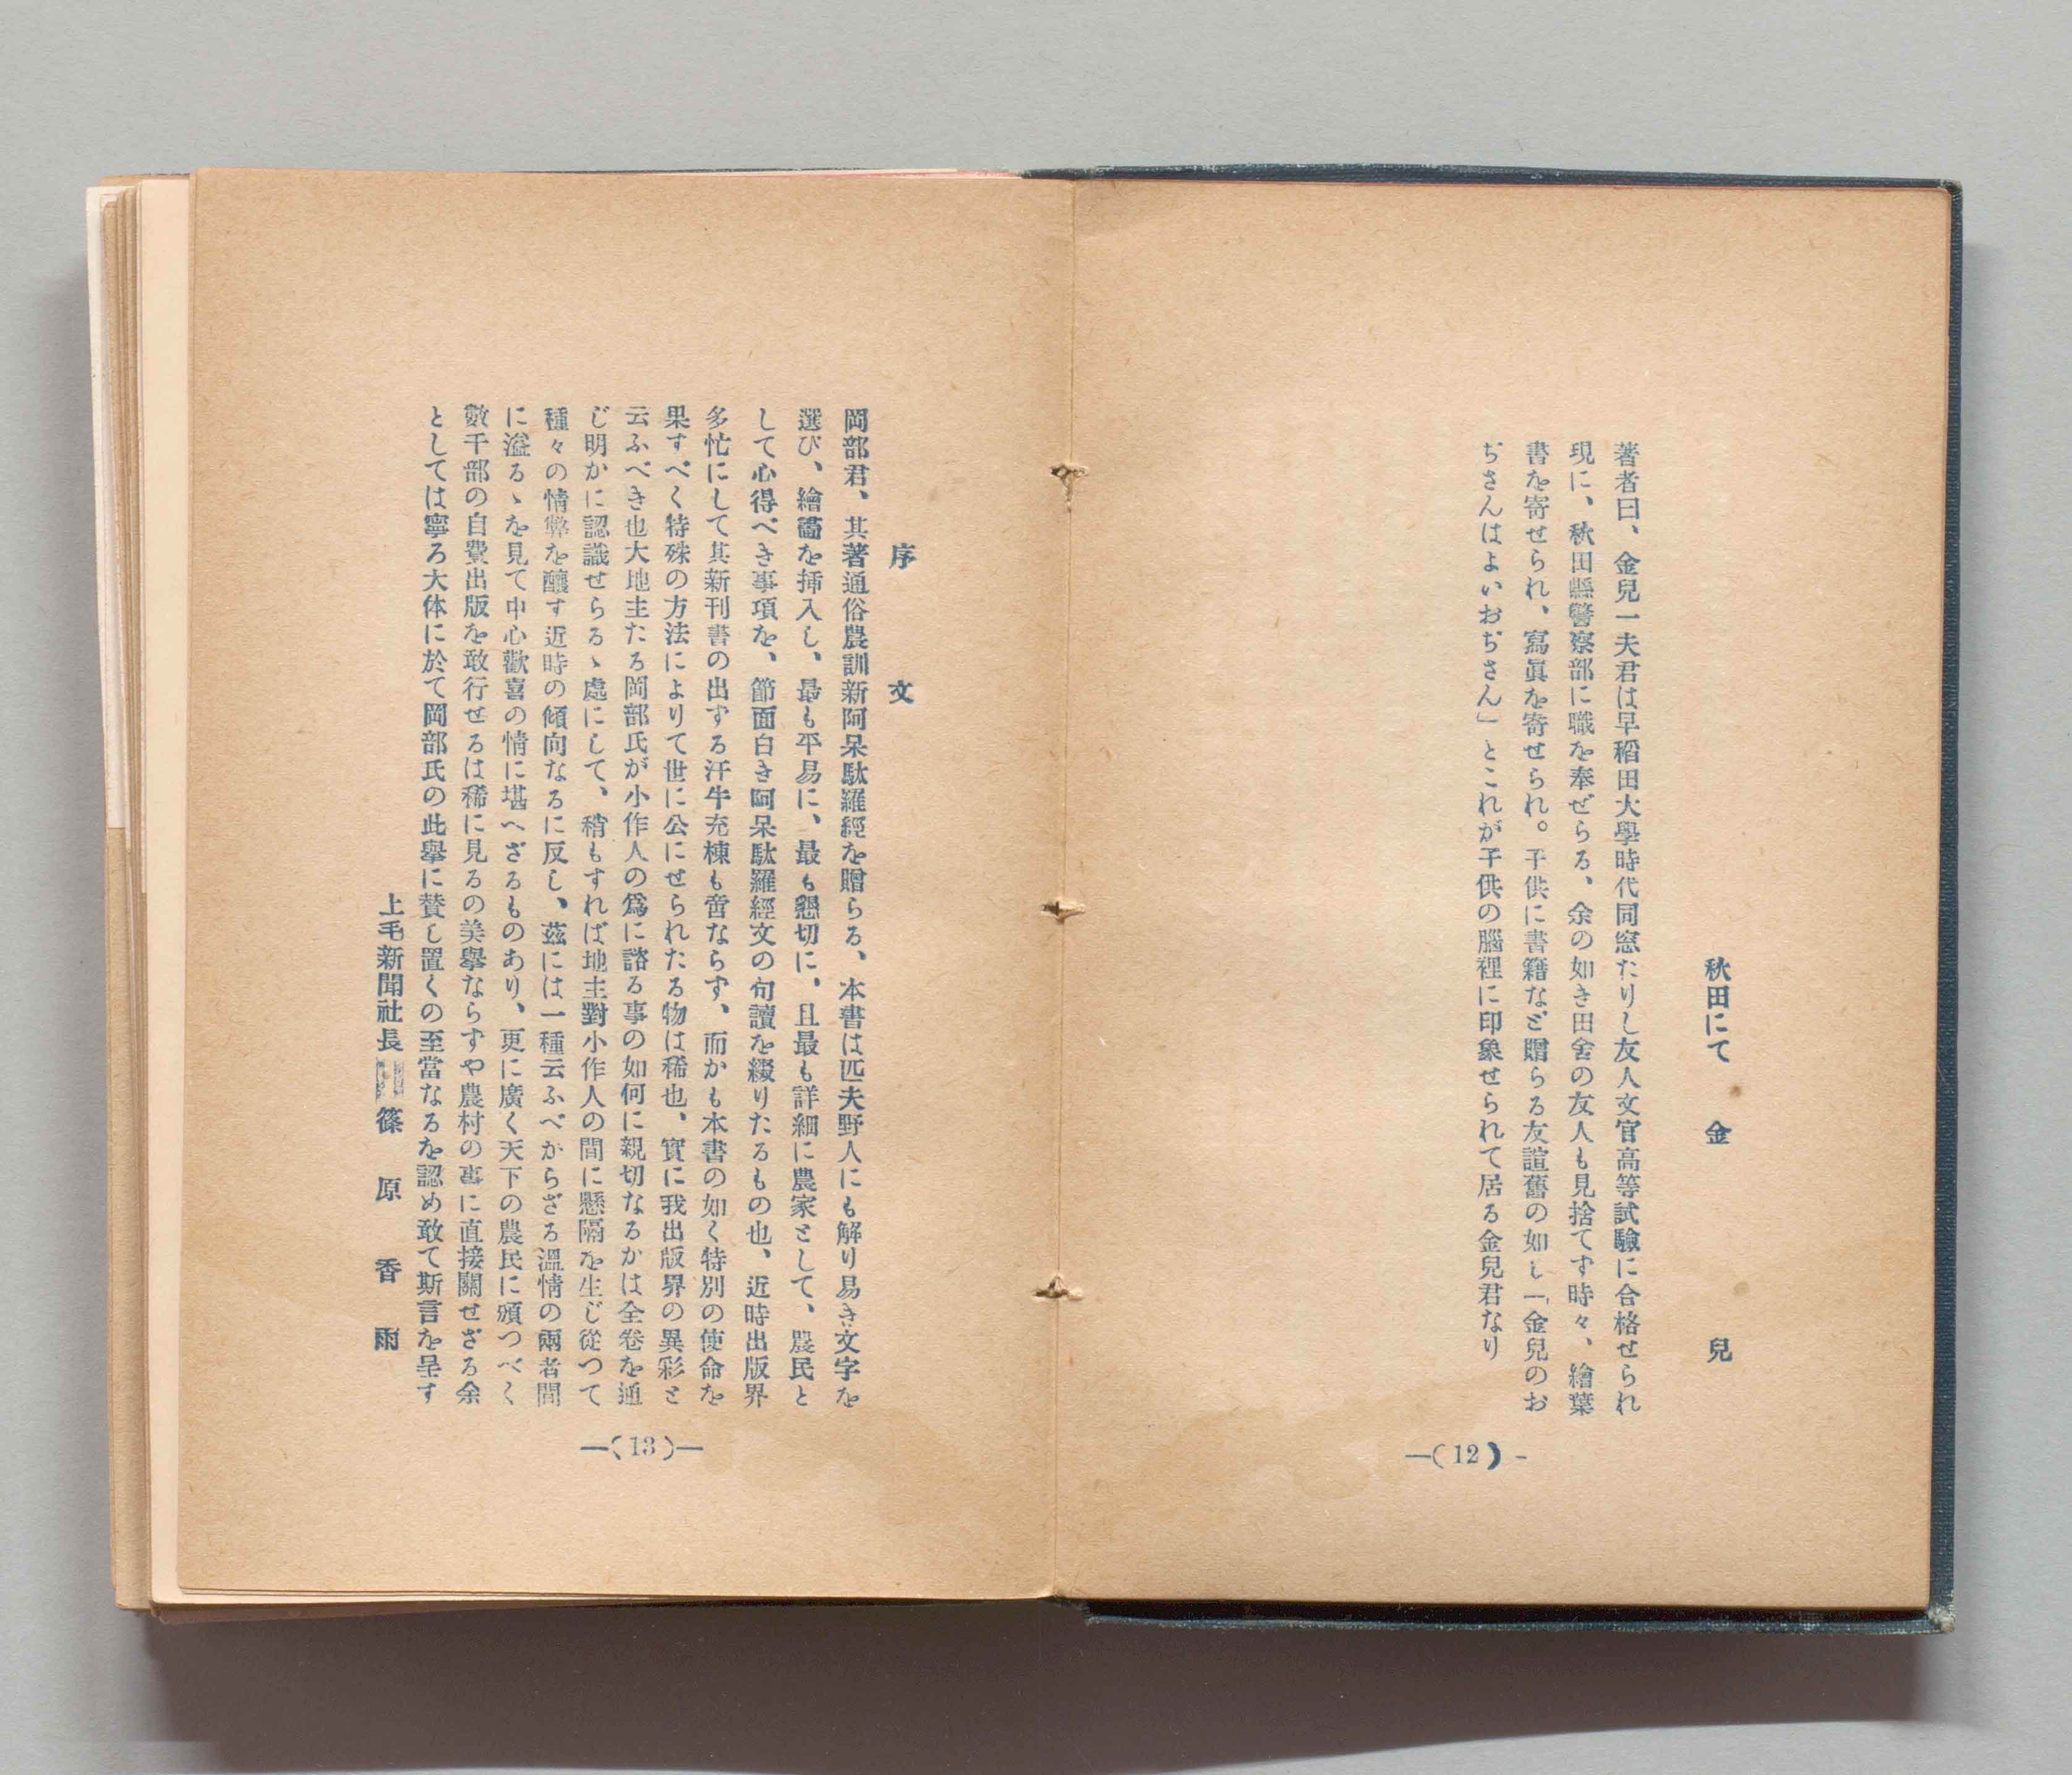 秋田にて　金　兒
著者曰、金兒一夫君は早稻田大學時代同窓たりし友人文官高等試驗に合格せられ
現に、秋田縣警察部に職を奉ぜらる、余の如き田舍の友人も見捨てず時々、繪葉
書を寄せられ、寫眞を寄せられ。子供に書籍など贈らる友誼舊の如し「金兒のお
ぢさんはよいおぢさん」とこれが子供の腦裡に印象せられて居る金兒君なり
―(12)-
序　文
岡部君、其著通俗農訓新阿呆駄羅經を贈らる、本書は匹夫野人にも解り易き文字を
選び、繪畵を挿入し、最も平易に、最も懇切に、且最も詳細に農家として、農民と
して心得べき事項を、節面白き阿呆駄羅經文の句讀を綴りたるもの也、近時出版界
多忙にして其新刊書の出ずる汗牛充棟も啻ならず、而かも本書の如く特別の使命を
果すべく特殊の方法によりて世に公にせられたる物は稀也、實に我出版界の異彩と
云ふべき也大地主たる岡部氏が小作人の爲に諮る事の如何に親切なるかは全卷を通
じ明かに認識せらるゝ處にして、稍もすれば地主對小作人の間に懸隔を生じ從つて
種々の情弊を釀す近時の傾向なるに反し、茲には一種云ふべからざる溫情の兩者間
に溢るゝを見て中心歡喜の情に堪へざるものあり、更に廣く天下の農民に頒つべく
數千部の自費出版を敢行せるは稀に見るの美擧ならずや農村の事に直接關せざる余
としては寧ろ大体に於て岡部氏の此擧に賛し置くの至當なるを認め敢て斯言を呈す
上毛新聞社長　篠　原　香　雨
―(13)―